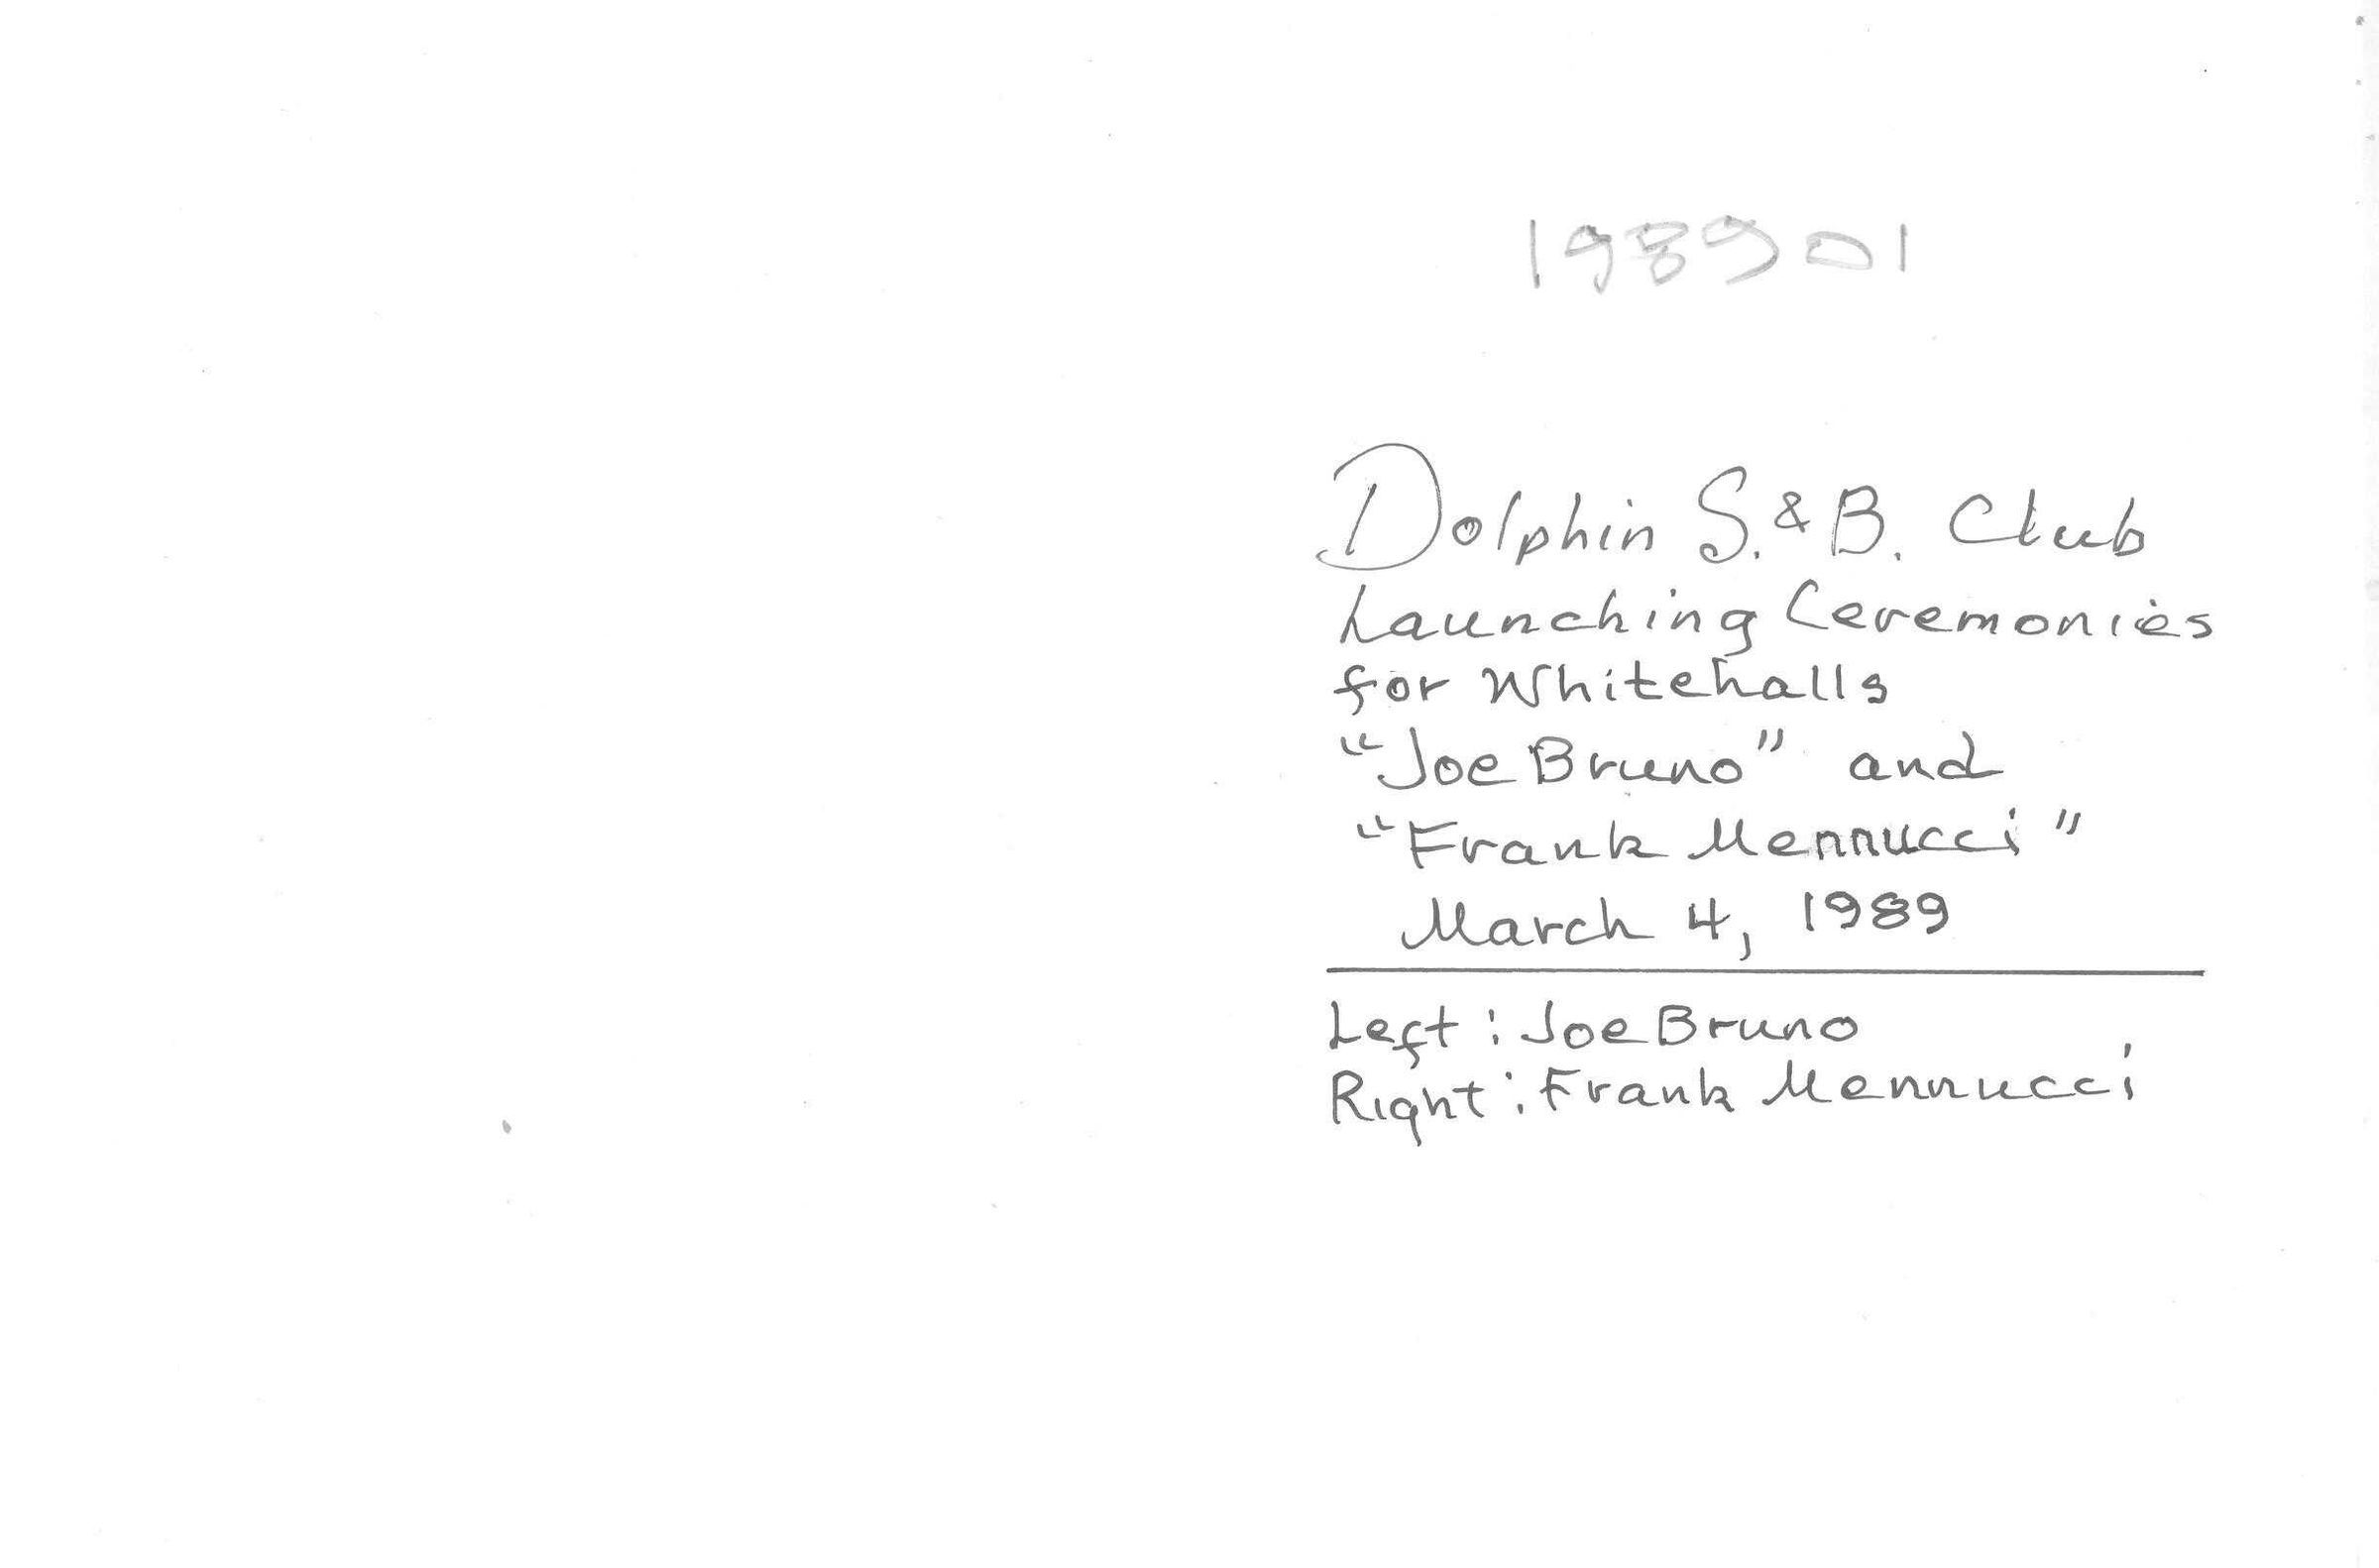 1989 01
Dolphin S. & B. Club
Launching Ceremonies
for Whitehalls
"Joe Bruno" and
"Frank Mennucci"
March 4, 1989
Left: Joe Bruno
Right: Frank Mennucci